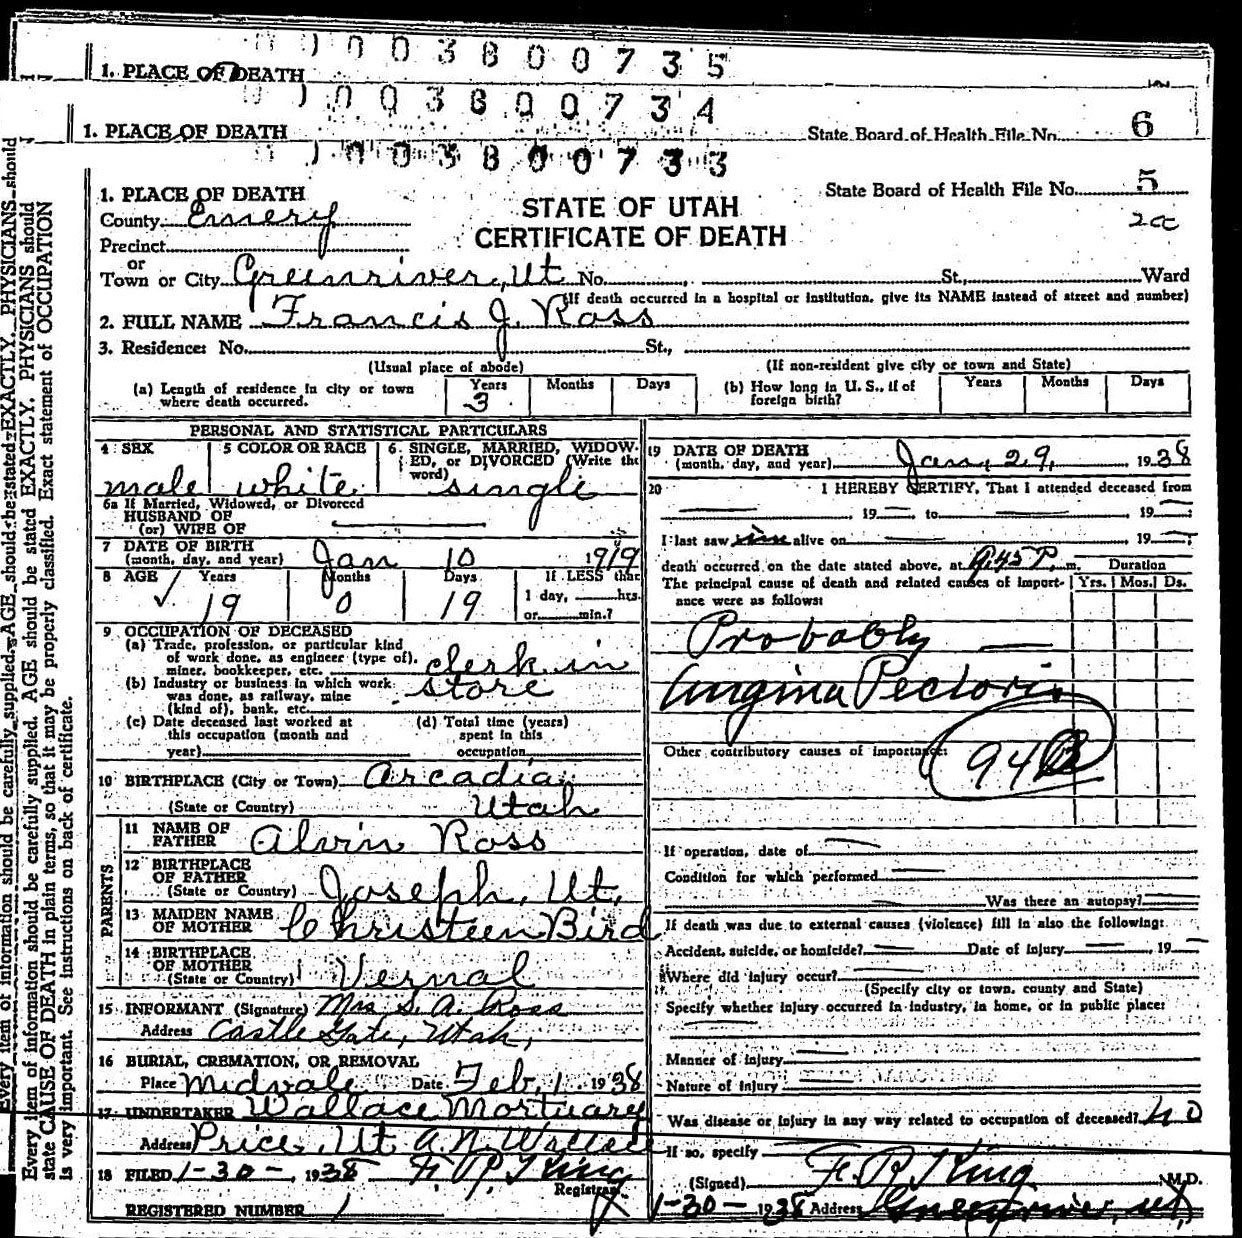 0 0 3 8 0 0 7 3 5
1. PLACE OF DEATH
0 0 3 8 0 0 7 3 4
1. PLACE OF DEATH State Board of Health File No. 6
0 0 3 8 0 0 7 3 3
1. PLACE OF DEATH State Board of Health File No. 5
County Emery STATE OF UTAH
Precinct CERTIFICATE OF DEATH
or
Town or City Greenriver, Ut No. St., Ward
(If death occurred in a hospital or institution, give its NAME instead of street and number)
2. FULL NAME Francis J. Ross
3. Residence: No. St.,
(Usual place of abode) (If non-resident give city or town and State)
(a) Length of residence in city or town where death occurred. Years 3 Months Days (b) How long in U. S., if of foreign birth? Years Months Days
PERSONAL AND STATISTICAL PARTICULARS
4 SEX 5 COLOR OR RACE 6 SINGLE, MARRIED, WIDOWED, or DIVORCED (Write the word)
male white single
6a If Married, Widowed, or Divorced
HUSBAND OF
(or) WIFE OF
7 DATE OF BIRTH
(month, day, and year) Jan 10 1919
8 AGE Years Months Days If LESS than
19 0 19 1 day, hrs.
or min.?
9 OCCUPATION OF DECEASED
(a) Trade, profession, or particular kind
of work done, as engineer (type of),
miner, bookkeeper, etc. clerk in
(b) Industry or business in which work
was done, as railway, mine store
(kind of), bank, etc.
(c) Date deceased last worked at (d) Total time (years)
this occupation (month and spent in this
year) occupation
10 BIRTHPLACE (City or Town) Arcadia
(State or Country) Utah
PARENTS
11 NAME OF
FATHER Alvin Ross
12 BIRTHPLACE
OF FATHER
(State or Country) Joseph, Ut.
13 MAIDEN NAME
OF MOTHER Christeen Bird
14 BIRTHPLACE
OF MOTHER
(State or Country) Vernal
15 INFORMANT (Signature) Mrs S. A. Ross
Address Castle Gate, Utah,
16 BURIAL, CREMATION, OR REMOVAL
Place Midvale Date Feb, 1 1938
17 UNDERTAKER Wallace Mortuary
Address Price, Ut A. N. Wallace
18 FILED 1-30- 1938 F. R. King
Registrar
REGISTERED NUMBER 1
19 DATE OF DEATH
(month, day, and year) Jan, 29, 1938
20 I HEREBY CERTIFY, That I attended deceased from
19 , to 19 ;
I last saw him alive on 19 ;
death occurred on the date stated above, at 9:45 P. m. Duration
The principal cause of death and related causes of import- Yrs. Mos. Ds.
ance were as follows:
Probably
Angina Pectoris
Other contributory causes of importance:
94B
If operation, date of
Condition for which performed
Was there an autopsy?
If death was due to external causes (violence) fill in also the following:
Accident, suicide, or homicide? Date of injury 19
Where did injury occur?
(Specify city or town, county and State)
Specify whether injury occurred in industry, in home, or in public place:
Manner of injury
Nature of injury
Was disease or injury in any way related to occupation of deceased? no
If so, specify
(Signed) F. R. King M.D.
1-30- 1938 Address Greenriver, Ut,
Every item of information should be carefully supplied. AGE should be stated EXACTLY. PHYSICIANS should
Every item of information should be carefully supplied. AGE should be stated EXACTLY. PHYSICIANS should
state CAUSE OF DEATH in plain terms, so that it may be properly classified. Exact statement of OCCUPATION
is very important. See instructions on back of certificate.